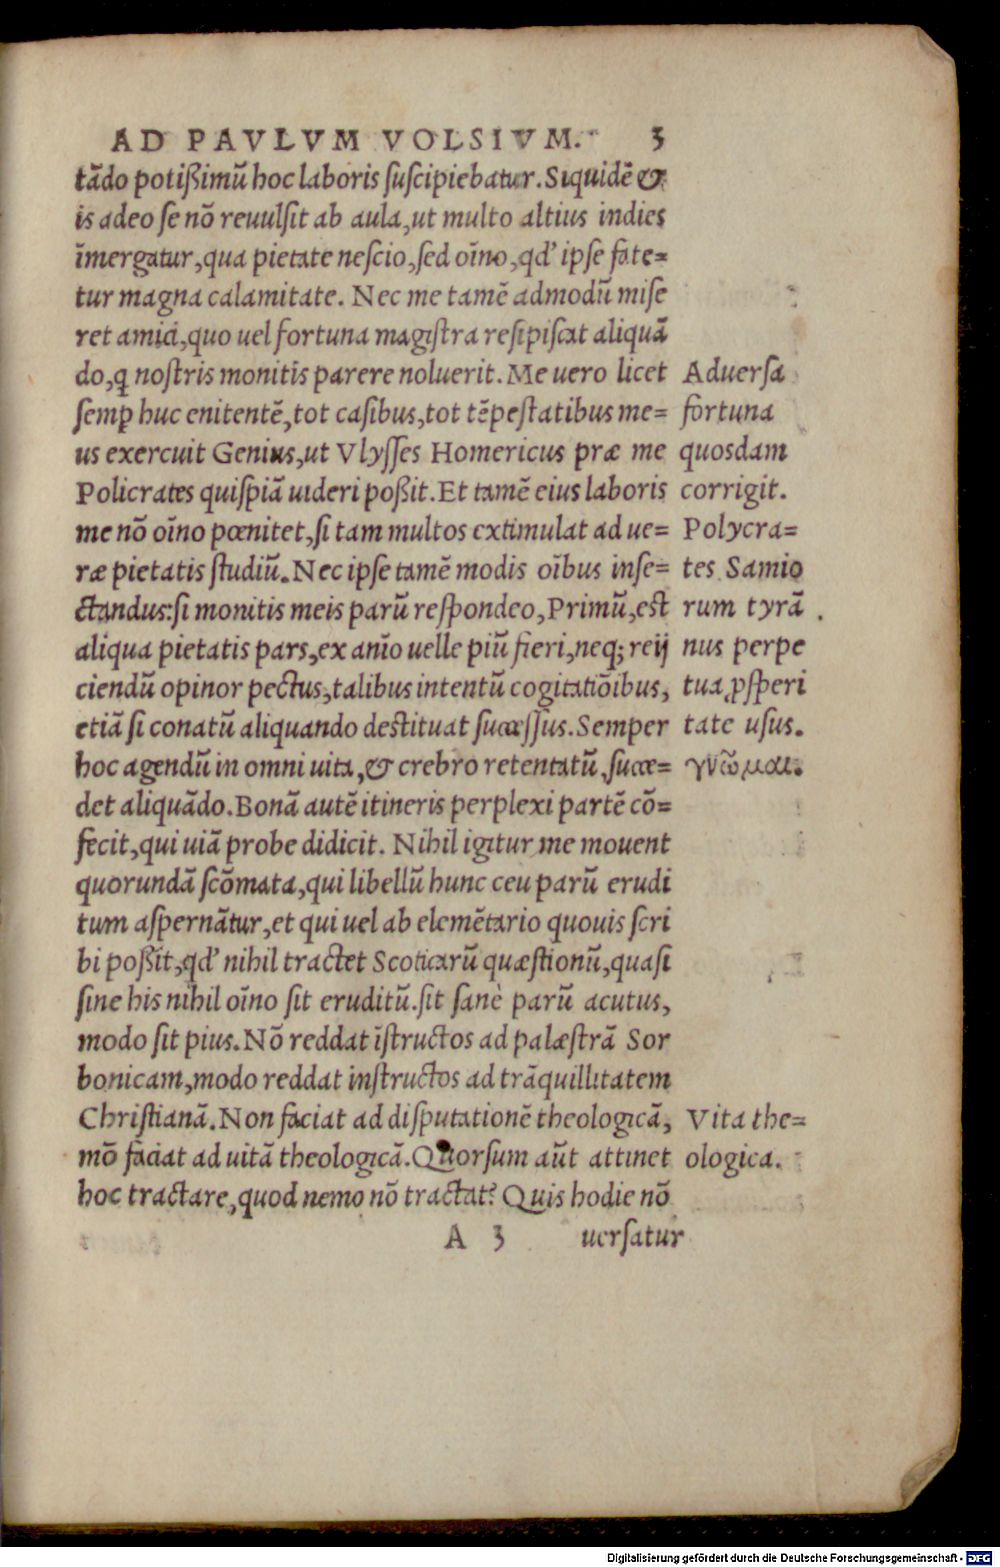 AD PAVLVM VOLSIVM. 3
tãdo potißimũ hoc laboris suscipiebatur. Siquidẽ &
is adeo se nõ reuulsit ab aula, ut multo altius indies
ĩmergatur, qua pietate nescio, sed oĩno, qd' ipse fate=
tur magna calamitate. Nec me tamẽ admodũ mise
ret amici, quo uel fortuna magistra resipiscat aliquã
do, ꝗ nostris monitis parere noluerit. Me uero licet
semꝑ huc enitentẽ, tot casibus, tot tẽpestatibus me=
us exercuit Genius, ut Vlysses Homericus præ me
Policrates quispiã uideri poßit. Et tamẽ eius laboris
me nõ oĩno pœnitet, si tam multos extimulat ad ue=
ræ pietatis studiũ. Nec ipse tamẽ modis oĩbus inse=
ctandus: si monitis meis parũ respondeo, Primũ, est
aliqua pietatis pars, ex anĩo uelle piũ fieri, neq; reij
ciendũ opinor pectus, talibus intentũ cogitatiõibus,
etiã si conatũ aliquando destituat successus. Semper
hoc agendũ in omni uita, & crebro retentatũ, succe=
det aliquãdo. Bonã autẽ itineris perplexi partẽ cõ=
fecit, qui uiã probe didicit. Nihil igitur me mouent
quorundã scõmata, qui libellũ hunc ceu parũ erudi
tum aspernãtur, et qui uel ab elemẽtario quouis scri
bi poßit, qd' nihil tractet Scoticarũ quæstionũ, quasi
sine his nihil oĩno sit eruditũ. sit sanè parũ acutus,
modo sit pius. Nõ reddat ĩstructos ad palæstrã Sor
bonicam, modo reddat instructos ad trãquillitatem
Christianã. Non faciat ad disputationẽ theologicã,
mõ faciat ad uitã theologicã. Quorsum aũt attinet
hoc tractare, quod nemo nõ tractat? Quis hodie nõ
A 3 uersatur
Aduersa
fortuna
quosdam
corrigit.
Polycra=
tes Samio
rum tyrã
nus perpe
tua ꝓsperi
tate usus.
γνῶμαι.
Vita the=
ologica.
Digitalisierung gefördert durch die Deutsche Forschungsgemeinschaft - DFG